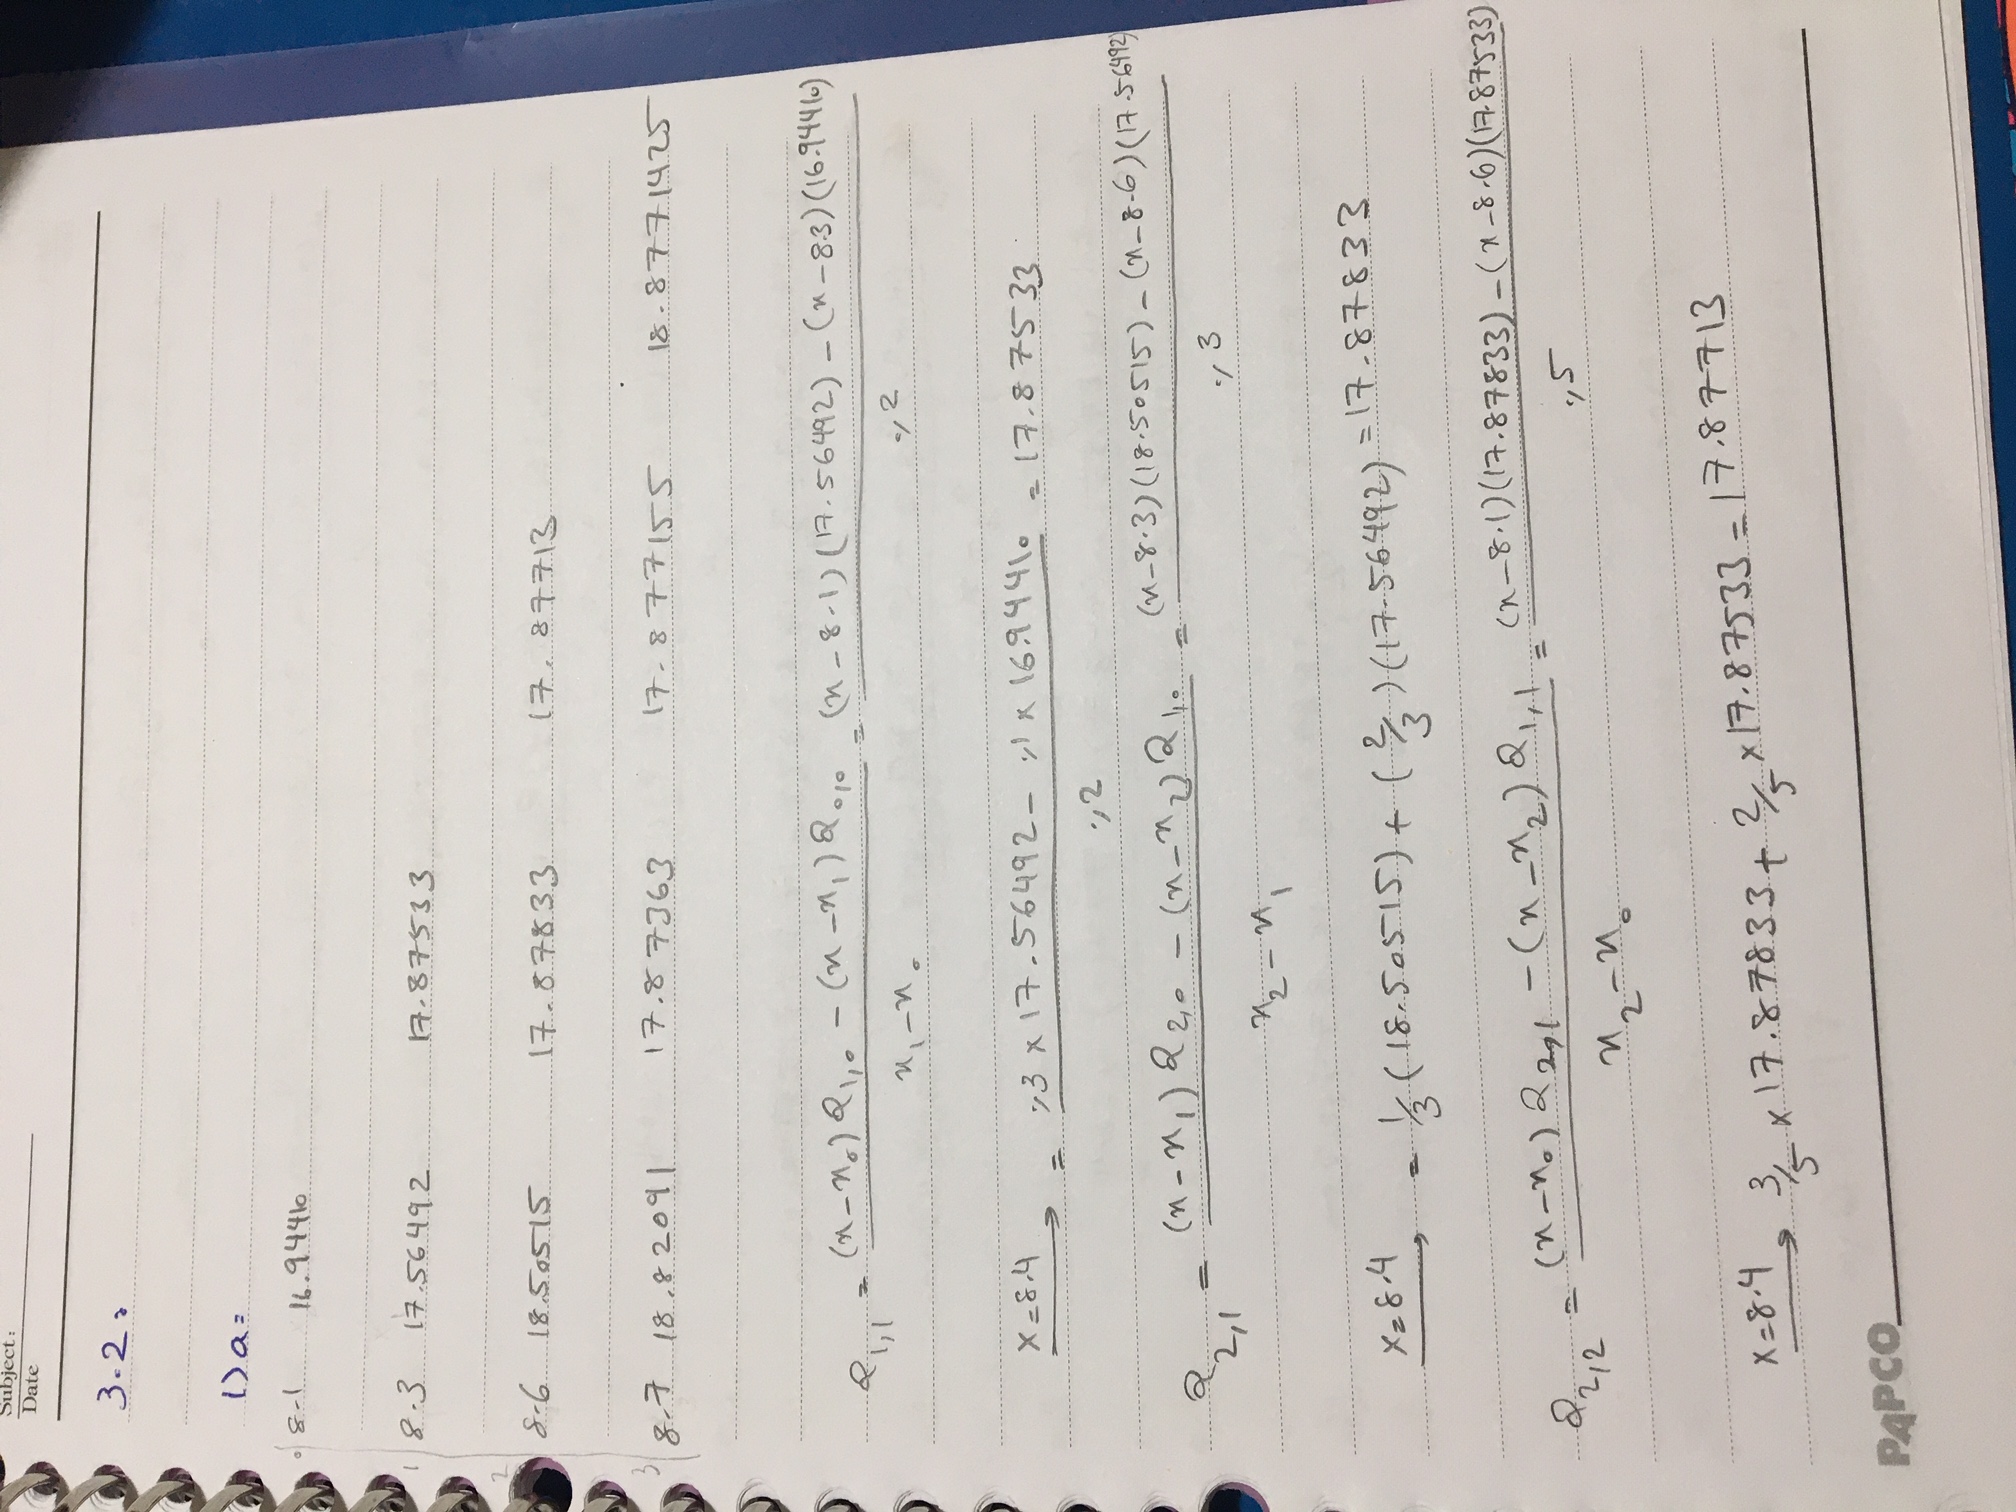 Subject:
Date
3.2:
1) a:
0 8.1 16.94410
1 8.3 17.56492 17.87533
2 8.6 18.50515 17.87833 17.87713
3 8.7 18.82091 17.87363 17.877155 18.8771425
Q1,1 = ((x-x0) Q1,0 - (x-x1) Q0,0) / (x1-x0) = ((x-8.1)(17.56492) - (x-8.3)(16.94410)) / 0,2
x=8.4 → = (0,3 × 17.56492 - 0,1 × 16.94410) / 0,2 = 17.87533
Q2,1 = ((x-x1) Q2,0 - (x-x2) Q1,0) / (x2-x1) = ((x-8.3)(18.50515) - (x-8.6)(17.56492)) / 0,3
x=8.4 → = 1/3 (18.50515) + (2/3)(17.56492) = 17.87833
Q2,2 = ((x-x0) Q2,1 - (x-x2) Q1,1) / (x2-x0) = ((x-8.1)(17.87833) - (x-8.6)(17.87533)) / 0,5
x=8.4 → 3/5 × 17.87833 + 2/5 × 17.87533 = 17.87713
PAPCO